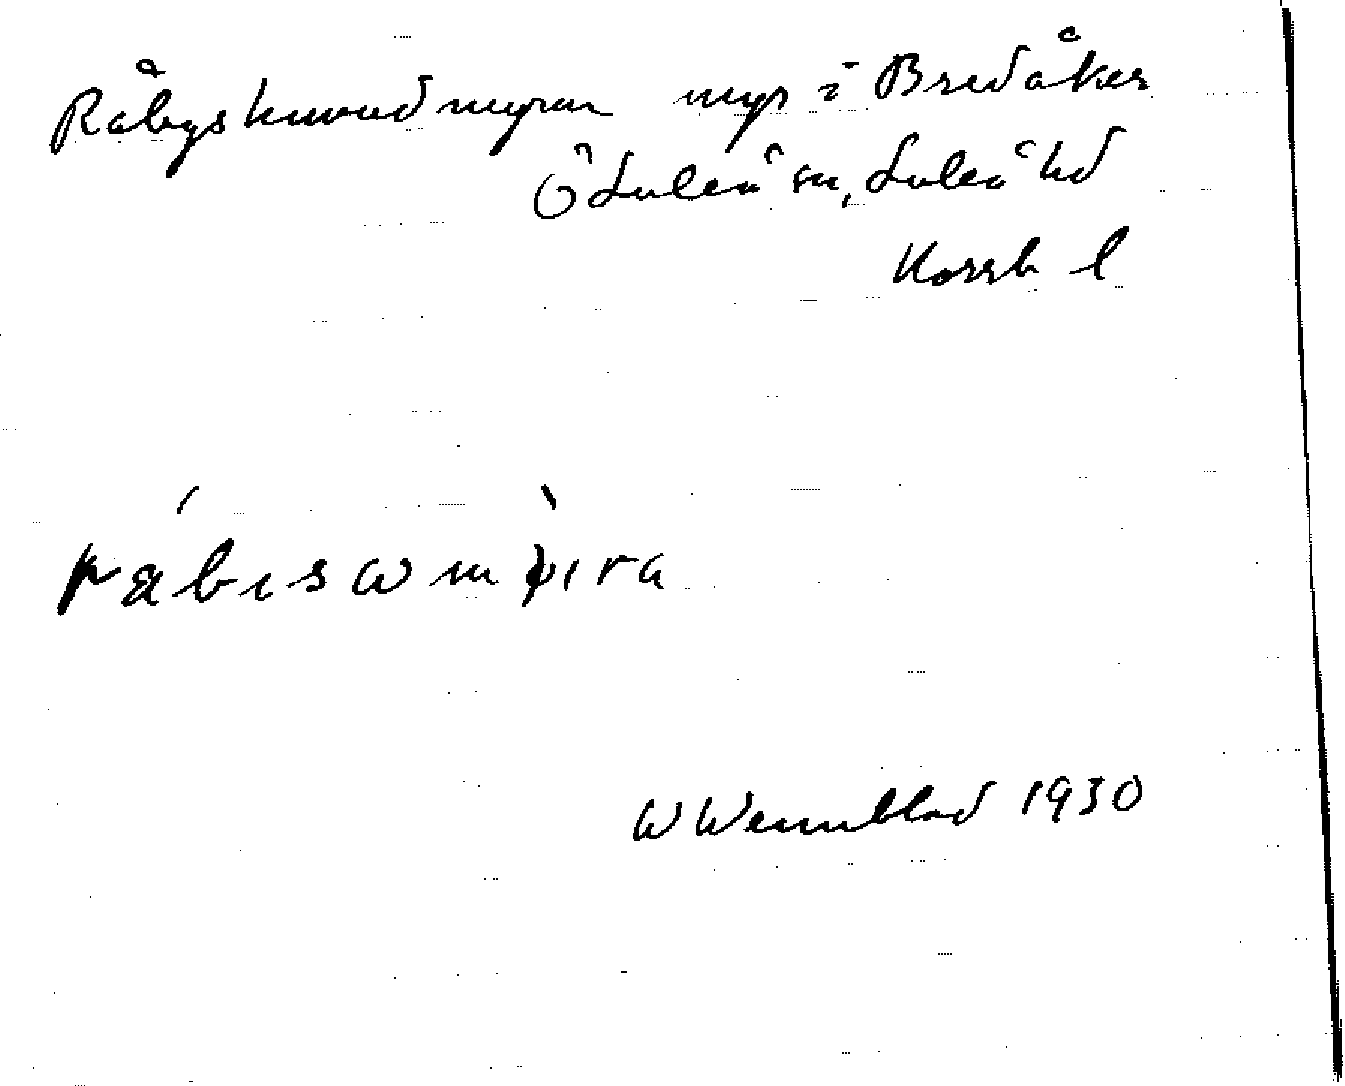 Råbyshuvudmyran myr i Bredåker
Ö Luleå sn, Luleå hd
Norrb l
rabisωmyra
W Wennblad 1930